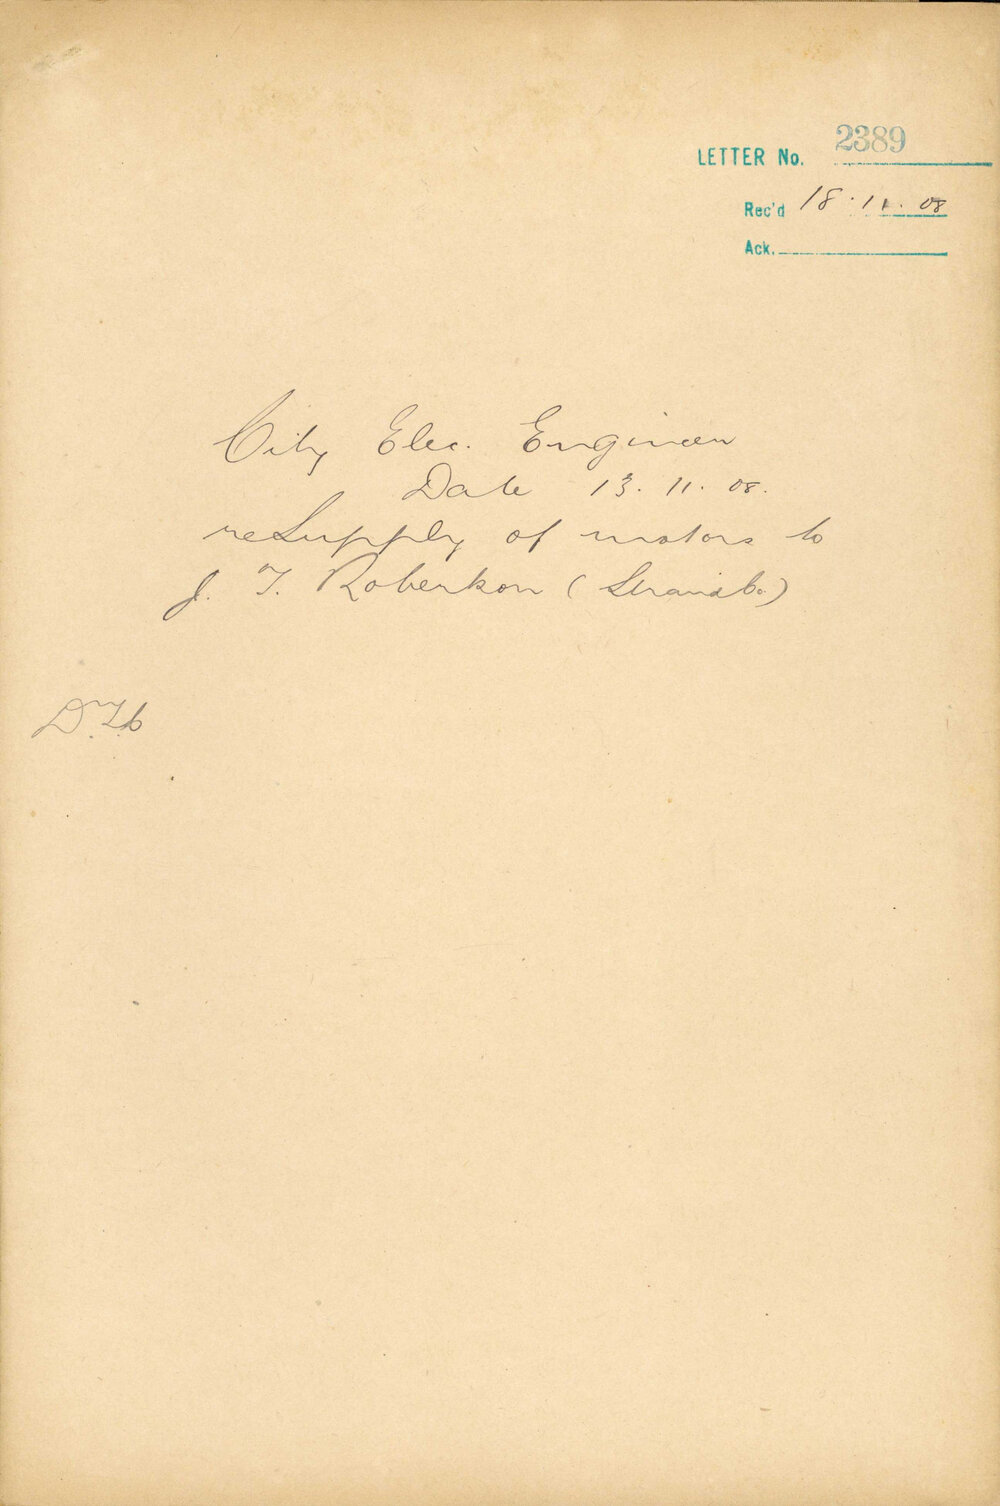 LETTER No. 2389
Rec'd 18.11.08
Ack.
City Elec. Engineer
Date 13.11.08.
re Supply of motors to
J. T. Robertson (Strand Co.)